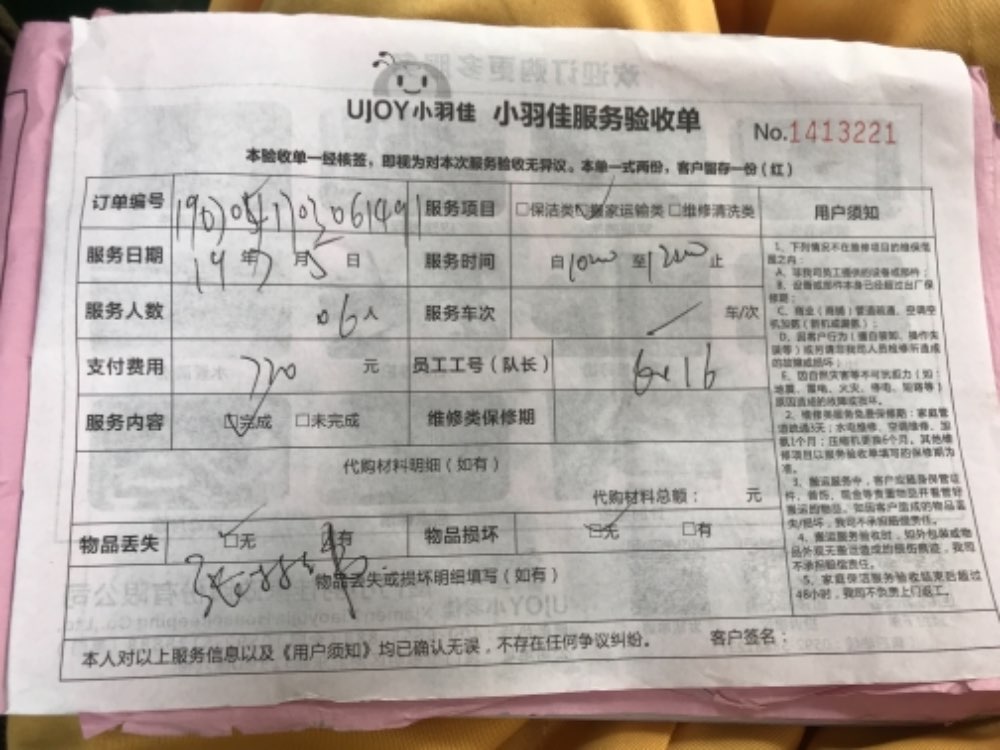 UJOY小羽佳 小羽佳服务验收单
No.1413221
本验收单一经核签，即视为对本次服务验收无异议。本单一式两份，客户留存一份（红）
订单编号 服务项目 □保洁类 □搬家运输类 □维修清洗类
服务日期 19 年 7 月 5 日 服务时间 自 1000 至 1200 止
服务人数 06 人 服务车次 车/次
支付费用 720 元 员工工号（队长）
服务内容 □完成 □未完成 维修类保修期
代购材料明细（如有）
代购材料总额： 元
物品丢失 □无 □有 物品损坏 □无 □有
物品丢失或损坏明细填写（如有）
本人对以上服务信息以及《用户须知》均已确认无误，不存在任何争议纠纷。 客户签名：
用户须知
1、下列情况不在维修项目的维保范
围之内：
A、非我司员工提供的设备或部件；
B、设备或部件本身已经超过出厂保
修期；
C、商业（商铺）管道疏通、空调空
机加氨（新机或漏氨）；
D、因客户行为（擅自装卸、操作失
误等）或另请非我司人员检修所造成
的故障或损坏；
E、因自然灾害等不可抗拒力（如：
地震、雷电、火灾、停电、短路等）
原因造成的故障或损坏。
2、维修类服务免费保修期：家庭管
道疏通3天；水电维修、空调维修、加
氨1个月；压缩机更换6个月。其他维
修项目以服务验收单填写的保修期为
准。
3、搬运服务中，客户应随身保管证
件、首饰、现金等贵重物品并看管好
搬运的物品。如因客户造成的物品丢
失/损坏，我司不承担赔偿责任。
4、搬运服务验收时，如外包装或物
品外观无搬运造成的损伤痕迹，我司
不承担赔偿责任。
5、家庭保洁服务验收结束后超过
48小时，我司不负责上门返工。